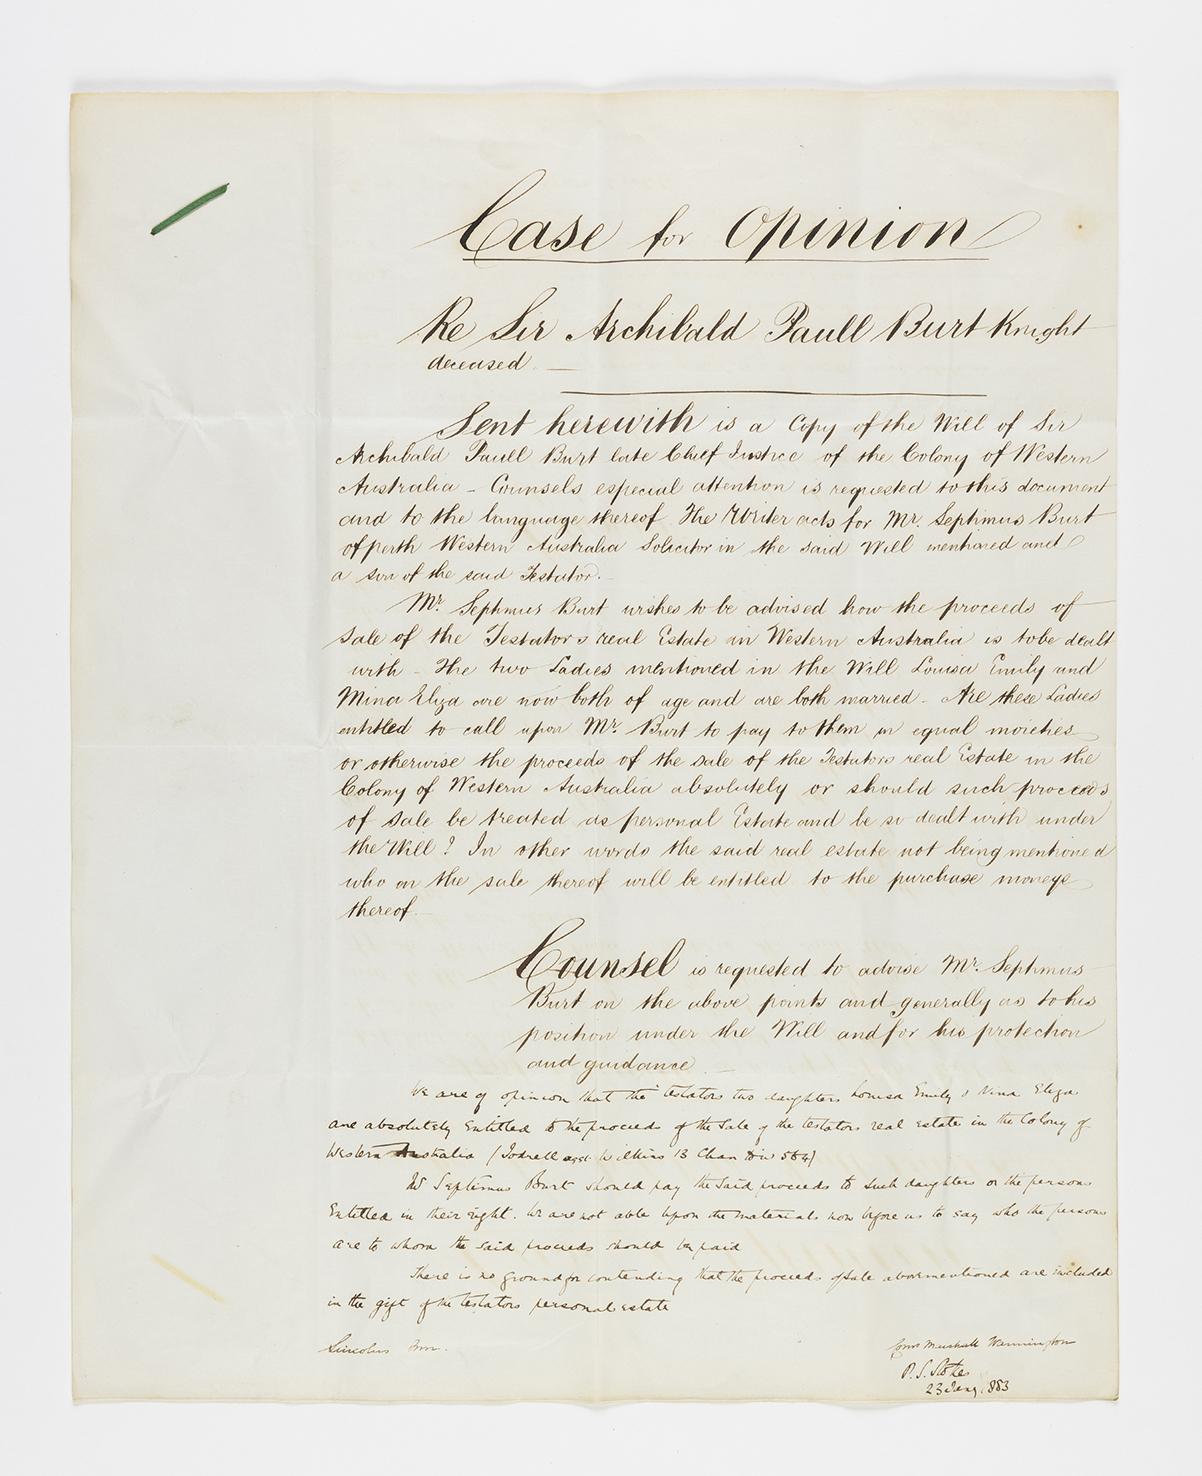 Case for Opinion
Re Sir Archibald Paull Burt Knight
deceased. —
Sent herewith is a Copy of the Will of Sir
Archibald Paull Burt late Chief Justice of the Colony of Western
Australia - Counsels especial attention is requested to this document
and to the language thereof. The Writer acts for Mr. Septimus Burt
of perth Western Australia Solicitor in the said Will mentioned and
a son of the said Testator. -
Mr. Septimus Burt wishes to be advised how the proceeds of
Sale of the Testators real Estate in Western Australia is to be dealt
with - The two Ladies mentioned in the Will Louisa Emily and
Mina Eliza are now both of age and are both married - Are these Ladies
entitled to call upon Mr. Burt to pay to them in equal moieties
or otherwise the proceeds of the sale of the Testators real Estate in the
Colony of Western Australia absolutely or should such proceeds
of sale be treated as personal Estate and be so dealt with under
the Will? In other words the said real estate not being mentioned
who on the sale thereof will be entitled to the purchase moneys
thereof -
Counsel is requested to advise Mr. Septimus
Burt on the above points and generally as to his
position under the Will and for his protection
and guidance. —
We are of opinion that the testators two daughters Louisa Emily & Nina Eliza
are absolutely Entitled to the proceeds of the Sale of the testators real estate in the Colony of
Western Australia ( Wilkins 13 Chan Div 564)
Mr Septimus Burt should pay the said proceeds to such daughters or the persons
Entitled in their right. We are not able upon the materials now before us to say who the persons
are to whom the said proceeds should be paid
There is no ground for contending that the proceeds of sale abovementioned are included
in the gift of the testators personal estate
Lincolns Inn.
Marshall Warmington
P. S. Stokes
23 Jany 1883